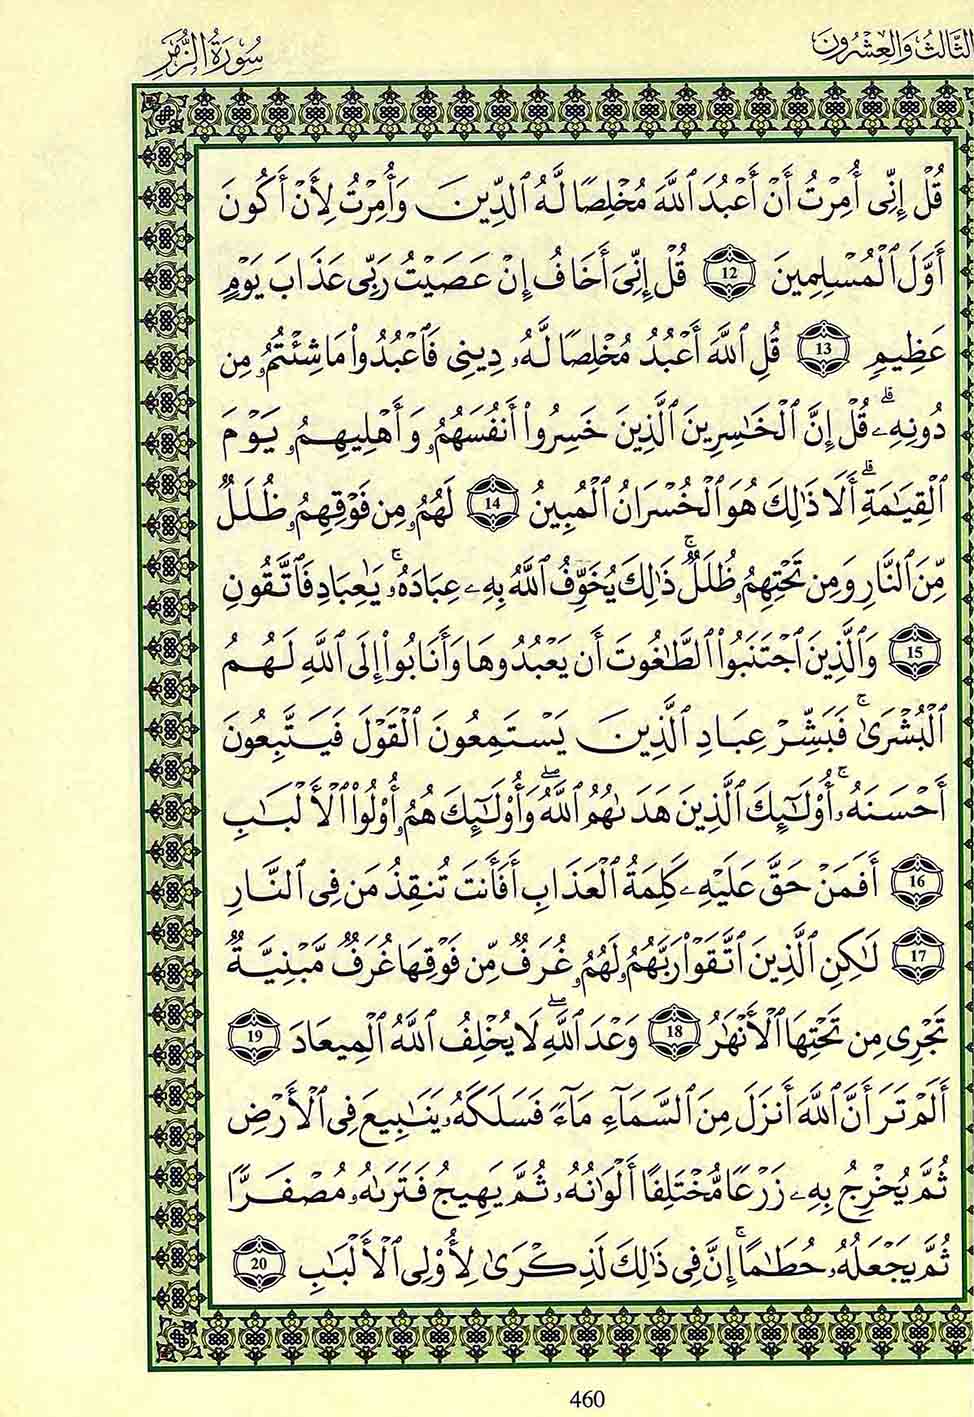 الثَّالِثُ وَالْعِشْرُونَ
سُورَةُ الزُّمَرِ
قُلْ إِنِّي أُمِرْتُ أَنْ أَعْبُدَ ٱللَّهَ مُخْلِصًا لَّهُ ٱلدِّينَ وَأُمِرْتُ لِأَنْ أَكُونَ
أَوَّلَ ٱلْمُسْلِمِينَ 12 قُلْ إِنِّىَ أَخَافُ إِنْ عَصَيْتُ رَبِّى عَذَابَ يَوْمٍ
عَظِيمٍ 13 قُلِ ٱللَّهَ أَعْبُدُ مُخْلِصًا لَّهُۥ دِينِى فَٱعْبُدُوا۟ مَا شِئْتُمُۥ مِن
دُونِهِۦۗ قُلْ إِنَّ ٱلْخَٰسِرِينَ ٱلَّذِينَ خَسِرُوٓا۟ أَنفُسَهُمُۥ وَأَهْلِيهِمُۥ يَوْمَ
ٱلْقِيَٰمَةِۗ أَلَا ذَٰلِكَ هُوَ ٱلْخُسْرَانُ ٱلْمُبِينُ 14 لَهُمُۥ مِن فَوْقِهِمُۥ ظُلَلٌ
مِّنَ ٱلنَّارِ وَمِن تَحْتِهِمُۥ ظُلَلٌۚ ذَٰلِكَ يُخَوِّفُ ٱللَّهُ بِهِۦ عِبَادَهُۥۚ يَٰعِبَادِ فَٱتَّقُونِ
15 وَٱلَّذِينَ ٱجْتَنَبُوا۟ ٱلطَّٰغُوتَ أَن يَعْبُدُوهَا وَأَنَابُوٓا۟ إِلَى ٱللَّهِ لَهُمُ
ٱلْبُشْرَىٰۚ فَبَشِّرْ عِبَادِ ٱلَّذِينَ يَسْتَمِعُونَ ٱلْقَوْلَ فَيَتَّبِعُونَ
أَحْسَنَهُۥۚ أُو۟لَٰٓئِكَ ٱلَّذِينَ هَدَىٰهُمُ ٱللَّهُۖ وَأُو۟لَٰٓئِكَ هُمُۥ أُو۟لُوا۟ ٱلْأَلْبَٰبِ
16 أَفَمَنْ حَقَّ عَلَيْهِۦ كَلِمَةُ ٱلْعَذَابِ أَفَأَنتَ تُنقِذُ مَن فِى ٱلنَّارِ
17 لَٰكِنِ ٱلَّذِينَ ٱتَّقَوْا۟ رَبَّهُمُۥ لَهُمُۥ غُرَفٌ مِّن فَوْقِهَا غُرَفٌ مَّبْنِيَّةٌ
تَجْرِى مِن تَحْتِهَا ٱلْأَنْهَٰرُ 18 وَعْدَ ٱللَّهِۖ لَا يُخْلِفُ ٱللَّهُ ٱلْمِيعَادَ 19
أَلَمْ تَرَ أَنَّ ٱللَّهَ أَنزَلَ مِنَ ٱلسَّمَآءِ مَآءً فَسَلَكَهُۥ يَنَٰبِيعَ فِى ٱلْأَرْضِ
ثُمَّ يُخْرِجُ بِهِۦ زَرْعًا مُّخْتَلِفًا أَلْوَٰنُهُۥ ثُمَّ يَهِيجُ فَتَرَىٰهُۥ مُصْفَرًّا
ثُمَّ يَجْعَلُهُۥ حُطَٰمًاۚ إِنَّ فِى ذَٰلِكَ لَذِكْرَىٰ لِأُو۟لِى ٱلْأَلْبَٰبِ 20
460